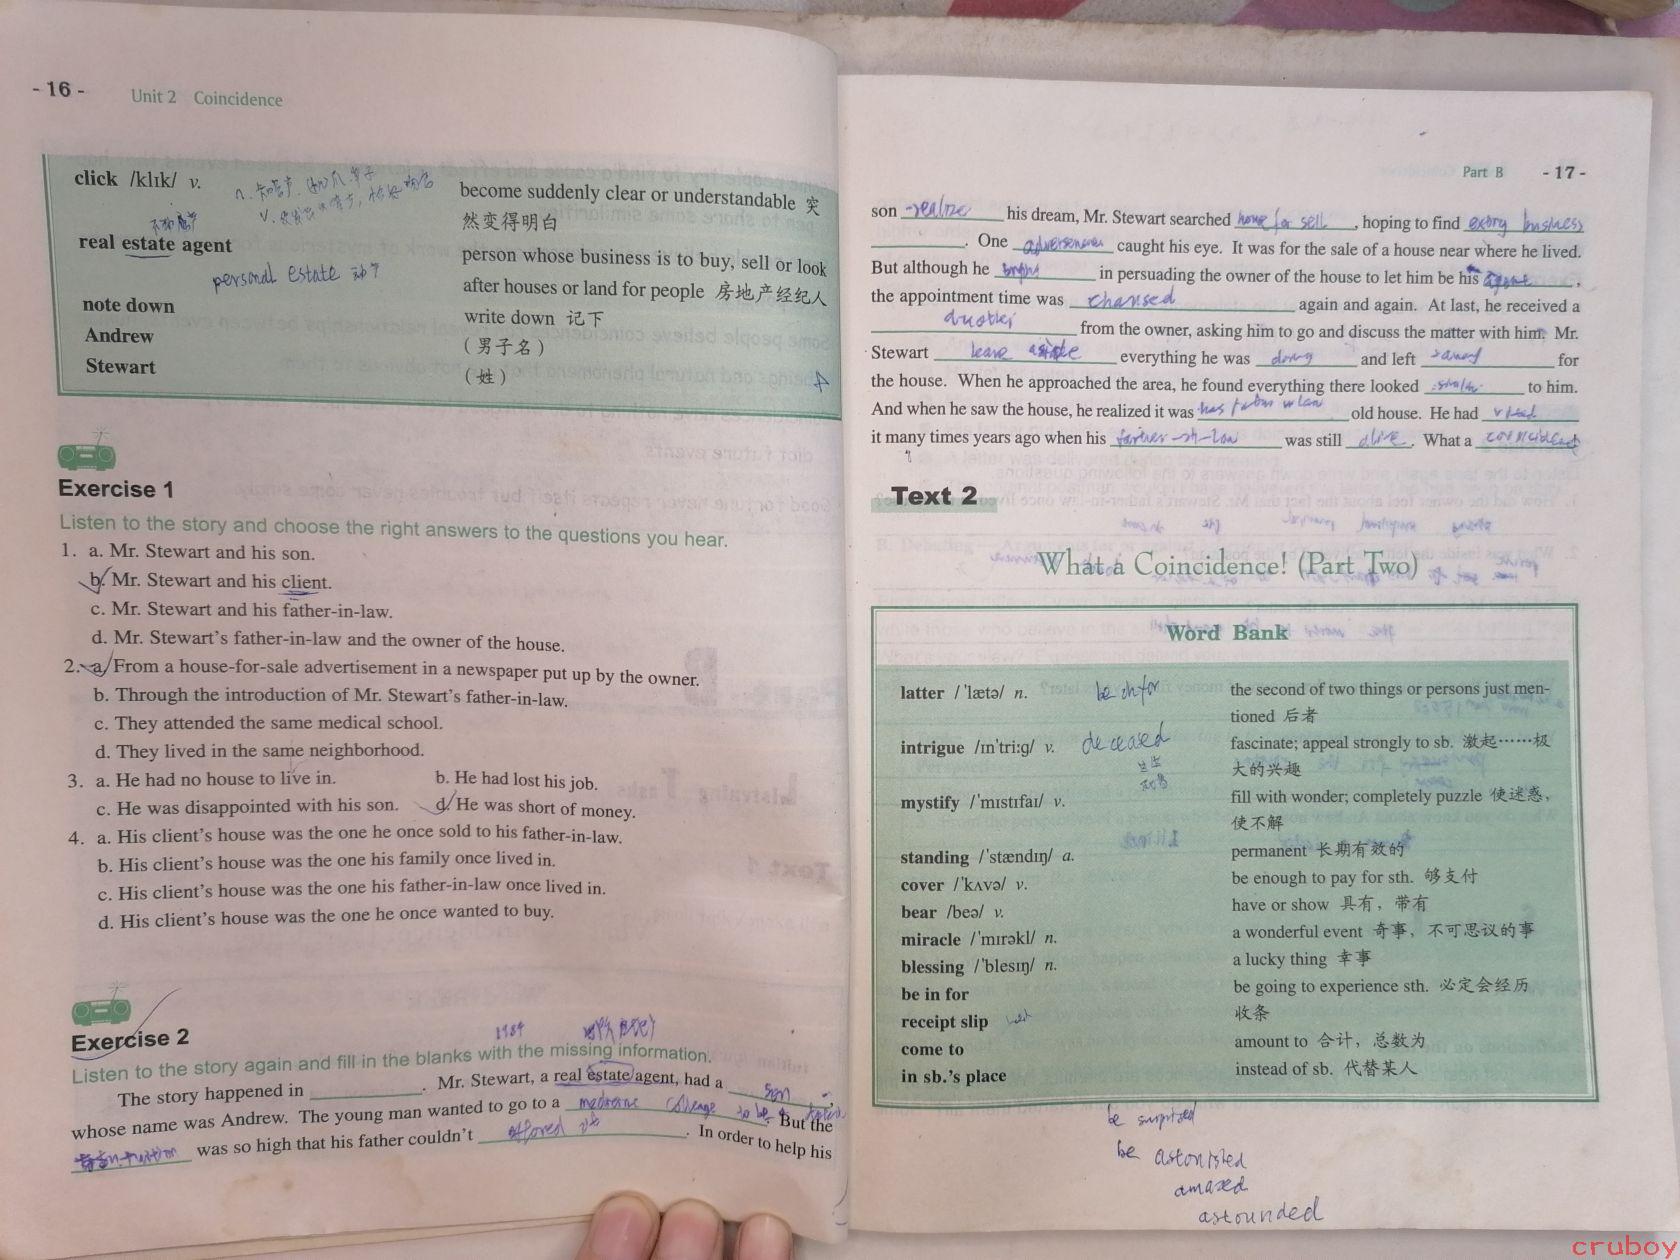 - 16 -
Unit 2 Coincidence
click /klɪk/ v.
become suddenly clear or understandable 突
然变得明白
real estate agent
person whose business is to buy, sell or look
after houses or land for people 房地产经纪人
personal estate
note down
write down 记下
Andrew
(男子名)
Stewart
(姓)
Exercise 1
Listen to the story and choose the right answers to the questions you hear.
1. a. Mr. Stewart and his son.
b. Mr. Stewart and his client.
c. Mr. Stewart and his father-in-law.
d. Mr. Stewart's father-in-law and the owner of the house.
2. a. From a house-for-sale advertisement in a newspaper put up by the owner.
b. Through the introduction of Mr. Stewart's father-in-law.
c. They attended the same medical school.
d. They lived in the same neighborhood.
3. a. He had no house to live in. b. He had lost his job.
c. He was disappointed with his son. d. He was short of money.
4. a. His client's house was the one he once sold to his father-in-law.
b. His client's house was the one his family once lived in.
c. His client's house was the one his father-in-law once lived in.
d. His client's house was the one he once wanted to buy.
Exercise 2
1984
Listen to the story again and fill in the blanks with the missing information.
The story happened in . Mr. Stewart, a real estate agent, had a son,
whose name was Andrew. The young man wanted to go to a to be a . But the
was so high that his father couldn't . In order to help his
Part B
- 17 -
son realize his dream, Mr. Stewart searched house for sell, hoping to find business
. One caught his eye. It was for the sale of a house near where he lived.
But although he in persuading the owner of the house to let him be his ,
the appointment time was chansed again and again. At last, he received a
from the owner, asking him to go and discuss the matter with him. Mr.
Stewart leave everything he was doing and left for
the house. When he approached the area, he found everything there looked to him.
And when he saw the house, he realized it was old house. He had
it many times years ago when his was still alive. What a
Text 2
What a Coincidence! (Part Two)
Word Bank
latter /ˈlætə/ n. be in for
the second of two things or persons just men-
tioned 后者
intrigue /ɪnˈtriːg/ v. deceased
fascinate; appeal strongly to sb. 激起……极
大的兴趣
mystify /ˈmɪstɪfaɪ/ v.
fill with wonder; completely puzzle 使迷惑,
使不解
standing /ˈstændɪŋ/ a.
permanent 长期有效的
cover /ˈkʌvə/ v.
be enough to pay for sth. 够支付
bear /beə/ v.
have or show 具有,带有
miracle /ˈmɪrəkl/ n.
a wonderful event 奇事,不可思议的事
blessing /ˈblesɪŋ/ n.
a lucky thing 幸事
be in for
be going to experience sth. 必定会经历
receipt slip
收条
come to
amount to 合计,总数为
in sb.'s place
instead of sb. 代替某人
be surprised
be astonished
amazed
astounded
cruboy